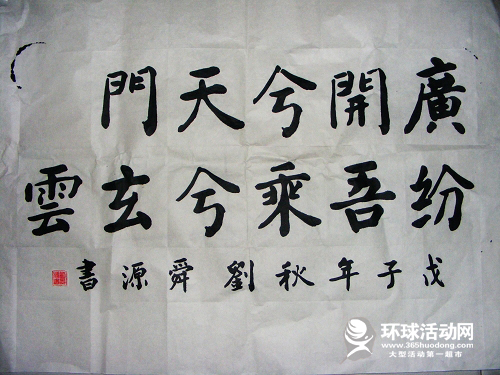 廣開兮天門
紛吾乘兮玄雲
戊子年秋劉舜源書
环球活动网
www.365huodong.com
大型活动第一超市